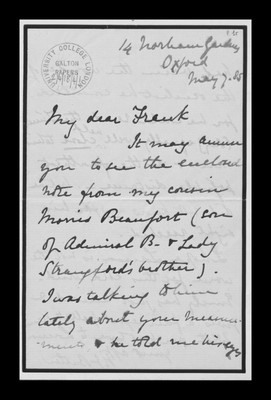 UNIVERSITY COLLEGE LONDON
GALTON
PAPERS
14 Norham Gardens
Oxford
May 7. 85
My dear Frank
It may amuse
you to see the enclosed
note from my cousin
Morris Beaufort (son
of Admiral B. & Lady
Strangford's brother).
I was talking to him
lately about your measure-
ments & he told me his